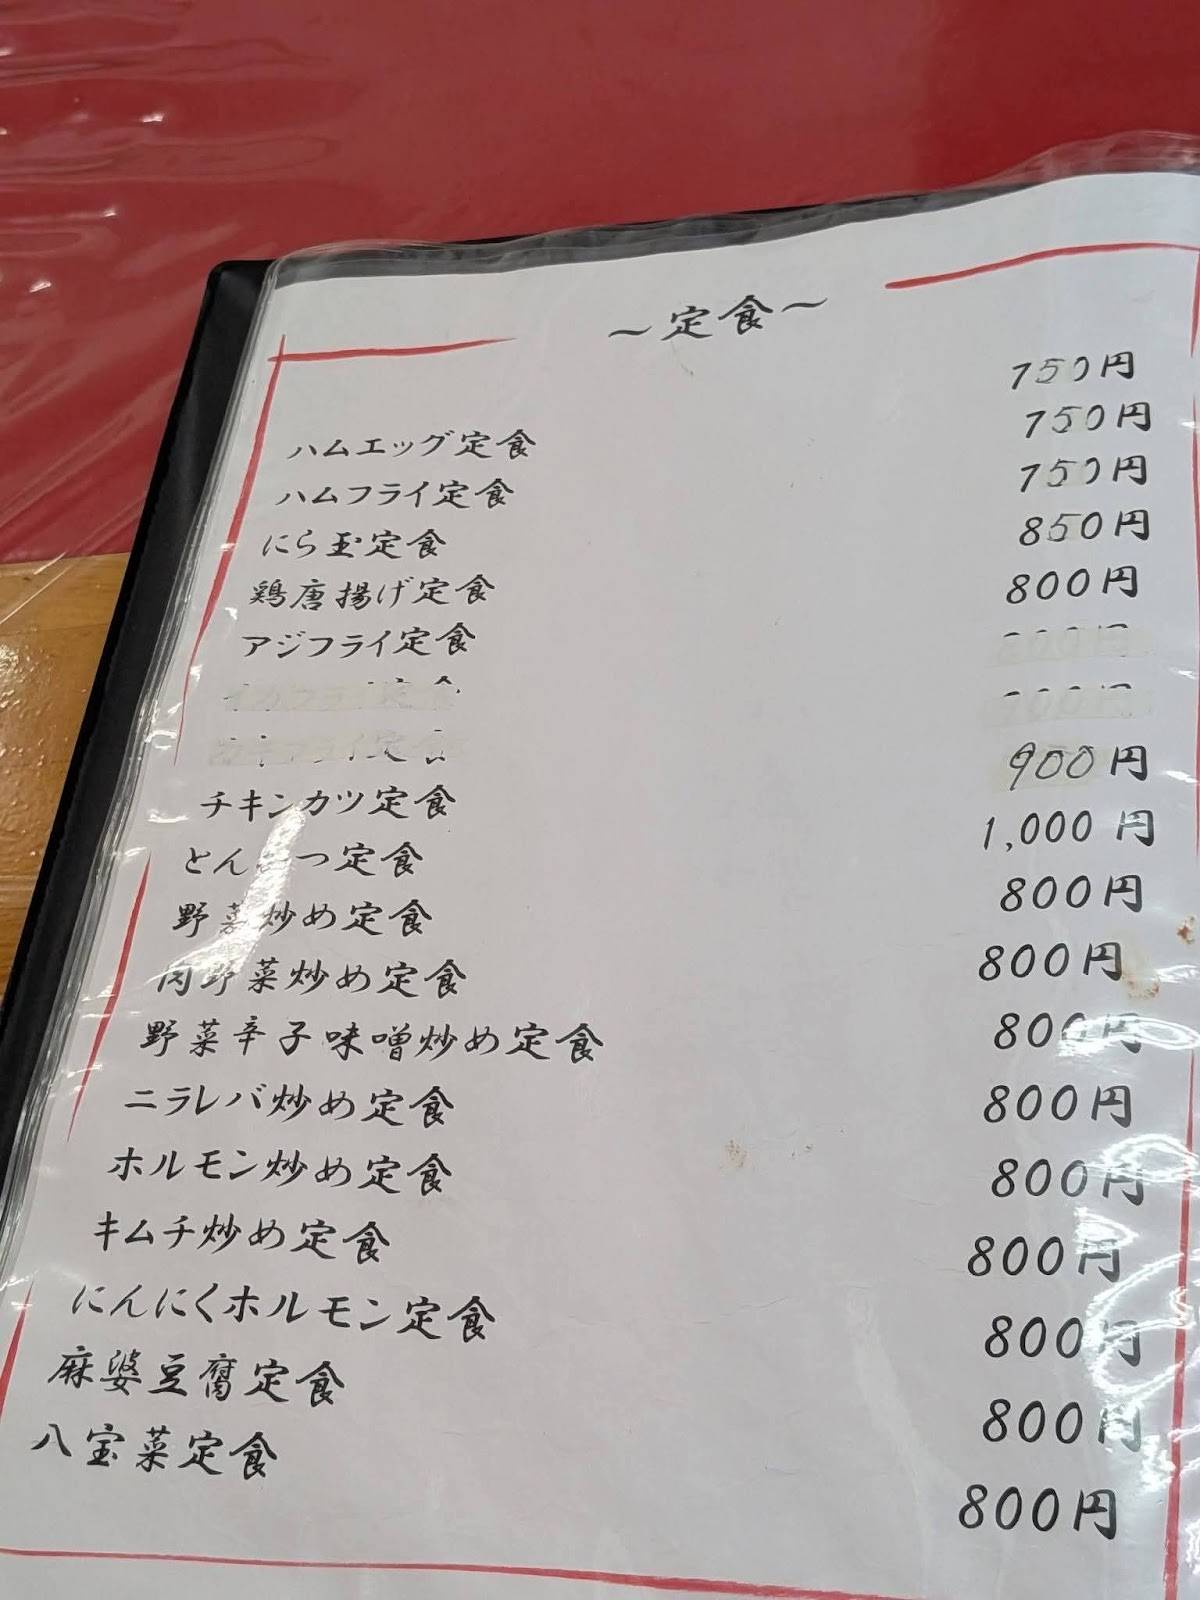 ～定食～
ハムエッグ定食 750円
ハムフライ定食 750円
にら玉定食 750円
鶏唐揚げ定食 850円
アジフライ定食 800円
チキンカツ定食 900円
とんかつ定食 1,000円
野菜炒め定食 800円
肉野菜炒め定食 800円
野菜辛子味噌炒め定食 800円
ニラレバ炒め定食 800円
ホルモン炒め定食 800円
キムチ炒め定食 800円
にんにくホルモン定食 800円
麻婆豆腐定食 800円
八宝菜定食 800円